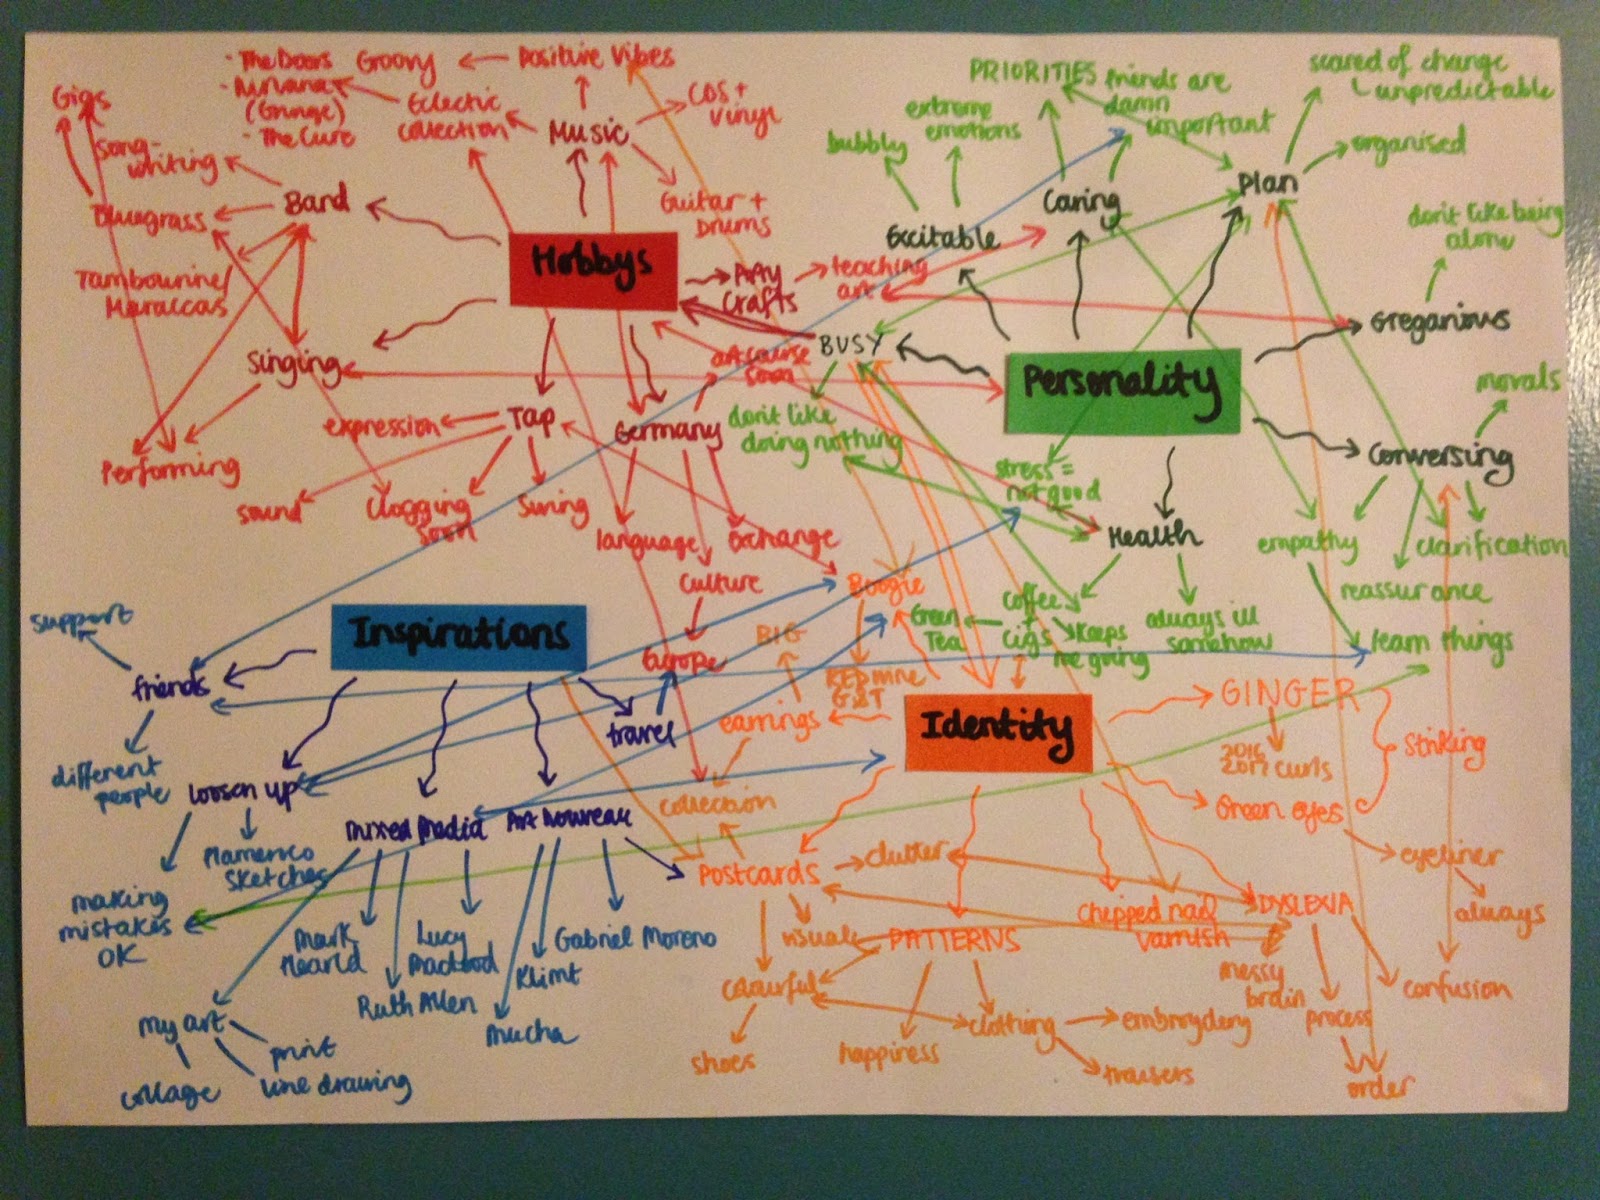 - The Doors
- Nirvana
(Grunge)
- The Cure
Groovy
Positive Vibes
Eclectic
collection
Music
CDS +
Vinyl
Guitar +
Drums
Gigs
Song-
writing
Bluegrass
Band
Tambourine/
Maraccas
Singing
Performing
Hobbys
Art
Crafts
teaching
art
art course
soon
Tap
expression
sound
Clogging
soon
Swing
Germany
language
Exchange
culture
Europe
PRIORITIES
friends are
damn
important
scared of change
unpredictable
extreme
emotions
bubbly
Excitable
Caring
Plan
organised
don't like being
alone
Greganious
BUSY
don't like
doing nothing
Personality
morals
Conversing
stress =
not good
Health
empathy
clarification
reassurance
learn things
coffee
cigs
Green
Tea
Keeps
me going
always ill
somehow
Inspirations
support
friends
different
people
loosen up
Flamenco
Sketches
making
mistakes
OK
travel
mixed media
Art Nouveau
Mark
Hearld
Ruth Allen
Lucy
Macleod
Klimt
Mucha
Gabriel Moreno
my art
print
line drawing
collage
Identity
Boogie
BIG
earrings
collection
Postcards
clutter
visual
colourful
shoes
PATTERNS
happiness
clothing
embroydery
trousers
GINGER
curls
Striking
Green eyes
eyeliner
always
chipped nail
varnish
DYSLEXIA
messy
brain
process
order
confusion